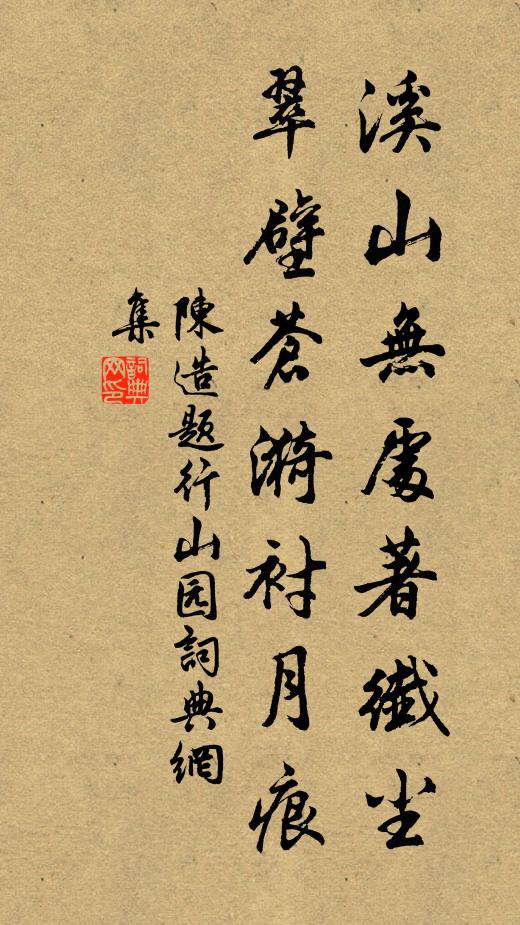 溪山無處著纖尘
翠壁蒼漪衬月痕
陳造题行山园詞典網
集
詞典网印